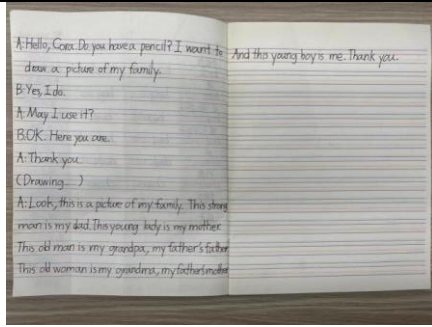 A: Hello, Cora. Do you have a pencil? I want to
draw a picture of my family.
B: Yes, I do.
A: May I use it?
B: OK. Here you are.
A: Thank you
(Drawing...)
A: Look, this is a picture of my family. This strong
man is my dad. This young lady is my mother.
This old man is my grandpa, my father's father
This old woman is my grandma, my father's mother
And this young boy is me. Thank you.